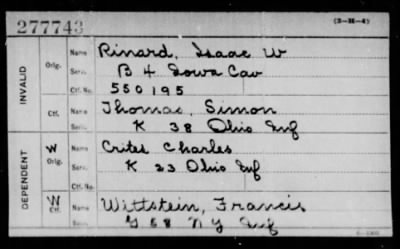 277743 (3-M-4)
INVALID
Orig. Name Rinard, Isaac W
Serv. B 4 Iowa Cav
Ctf. No. 550195
Ctf. Name Thomas, Simon
Serv. K 38 Ohio Inf
DEPENDENT
W Orig. Name Crites Charles
Serv. K 23 Ohio Inf
Ctf. No.
W Ctf. Name Wittstein, Francis
Serv. G 58 N Y Inf